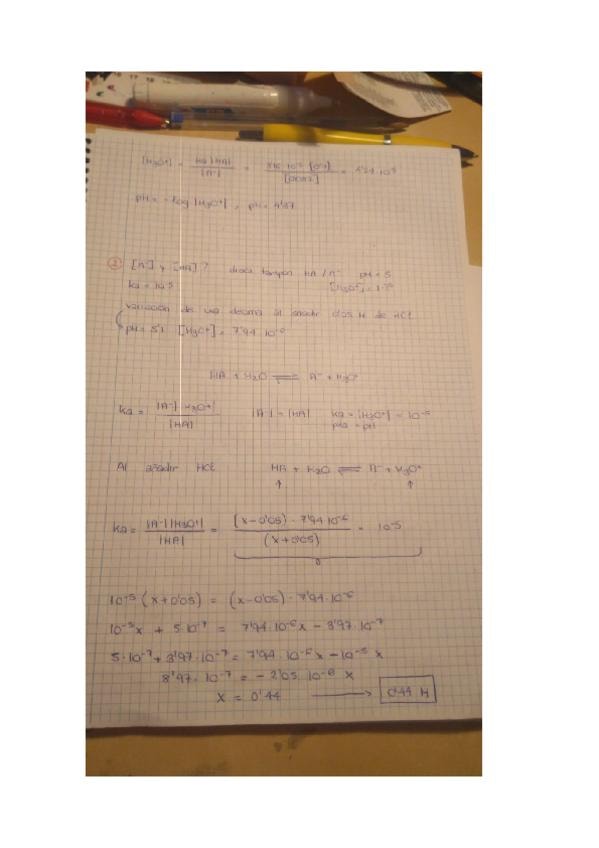 [H3O+] = Ka |HA| / |A-| = [0'1] / = 10-5
pH = - log |H3O+| , pH = 4'37
2 [A-] y [HA] ? disol. tampon HA / A- pH = 5
Ka = 10-5 [H3O+] =
variación de una decima al añadir 0'05 M de HCl
pH = 5'1 [H3O+] = 7'94 10-6
HA + H2O ⇌ A- + H3O+
Ka = |A-| |H3O+| / |HA| |A-| = |HA| Ka = |H3O+| = 10-5
pKa = pH
Al añadir HCl HA + H2O ⇌ A- + H3O+
↑ ↑
Ka = |A-| |H3O+| / |HA| = (x-0'05) · 7'94 10-6 / (x+0'05) = 10-5
10-5 (x+0'05) = (x-0'05) · 7'94 · 10-6
10-5x + 5·10-7 = 7'94 · 10-6 x - 3'97 · 10-7
5·10-7 + 3'97 · 10-7 = 7'94 · 10-6 x - 10-5 x
8'97 · 10-7 = - 2'05 10-6 x
x = 0'44 → 0'44 M